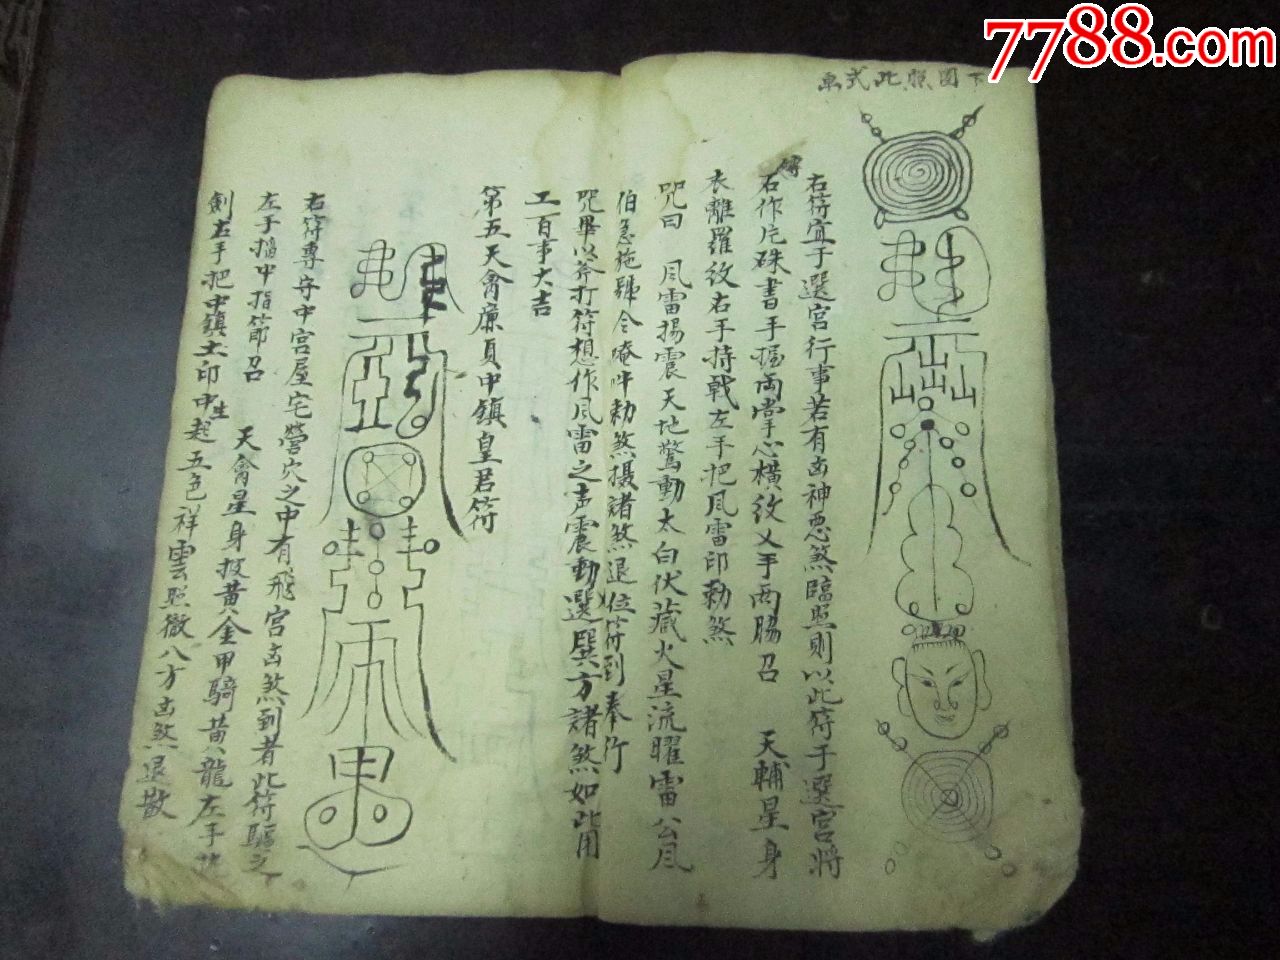 7788.com
下圖照此式画
右符宜于選宮行事若有凶神惡煞臨照則以此符于選宮將
磚石作片硃書手握両掌心橫紋乂手両脇召 天輔星身
衣離羅紋右手持戟左手把風雷印勅煞
咒曰 風雷揚震天地驚動太白伏藏火星流曜雷公風
伯急施號令唵吽勅煞摄諸煞退位符到奉行
咒畢以斧打符想作風雷之声震動選巽方諸煞如此用
工百事大吉
第五天禽廉貞中鎮皇君符
右符專守中宮屋宅營穴之中有飛宮凶煞到者此符驅之
左手指中指節召 天禽星身披黃金甲騎黃龍左手
劍右手把中鎮土印中生起五色祥雲照徹八方凶煞退散